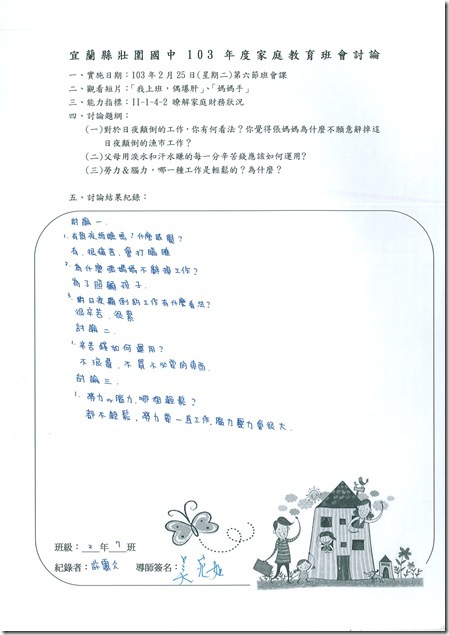 宜蘭縣壯圍國中 103 年度家庭教育班會討論
一、實施日期：103 年 2 月 25 日(星期二)第六節班會課
二、觀看短片：「我上班，偶爆肝」、「媽媽手」
三、能力指標：II-1-4-2 瞭解家庭財務狀況
四、討論題綱：
(一)對於日夜顛倒的工作，你有何看法？你覺得張媽媽為什麼不願意辭掉這
日夜顛倒的漁市工作？
(二)父母用淚水和汗水賺的每一分辛苦錢應該如何運用？
(三)勞力&腦力，哪一種工作是輕鬆的？為什麼？
五、討論結果紀錄：
討論一.
1. 有熬夜過嗎？什麼感覺？
有, 很痛苦, 會打瞌睡
2. 為什麼張媽媽不辭掉工作？
為了照顧孩子.
3. 對日夜顛倒的工作有什麼看法？
很辛苦, 很累
討論二.
1. 辛苦錢如何運用？
不浪費, 不買不必要的東西.
討論三.
1. 勞力 or 腦力, 哪個輕鬆？
都不輕鬆, 勞力要一直工作, 腦力壓力會很大.
班級： 2 年 7 班
紀錄者： 導師簽名：